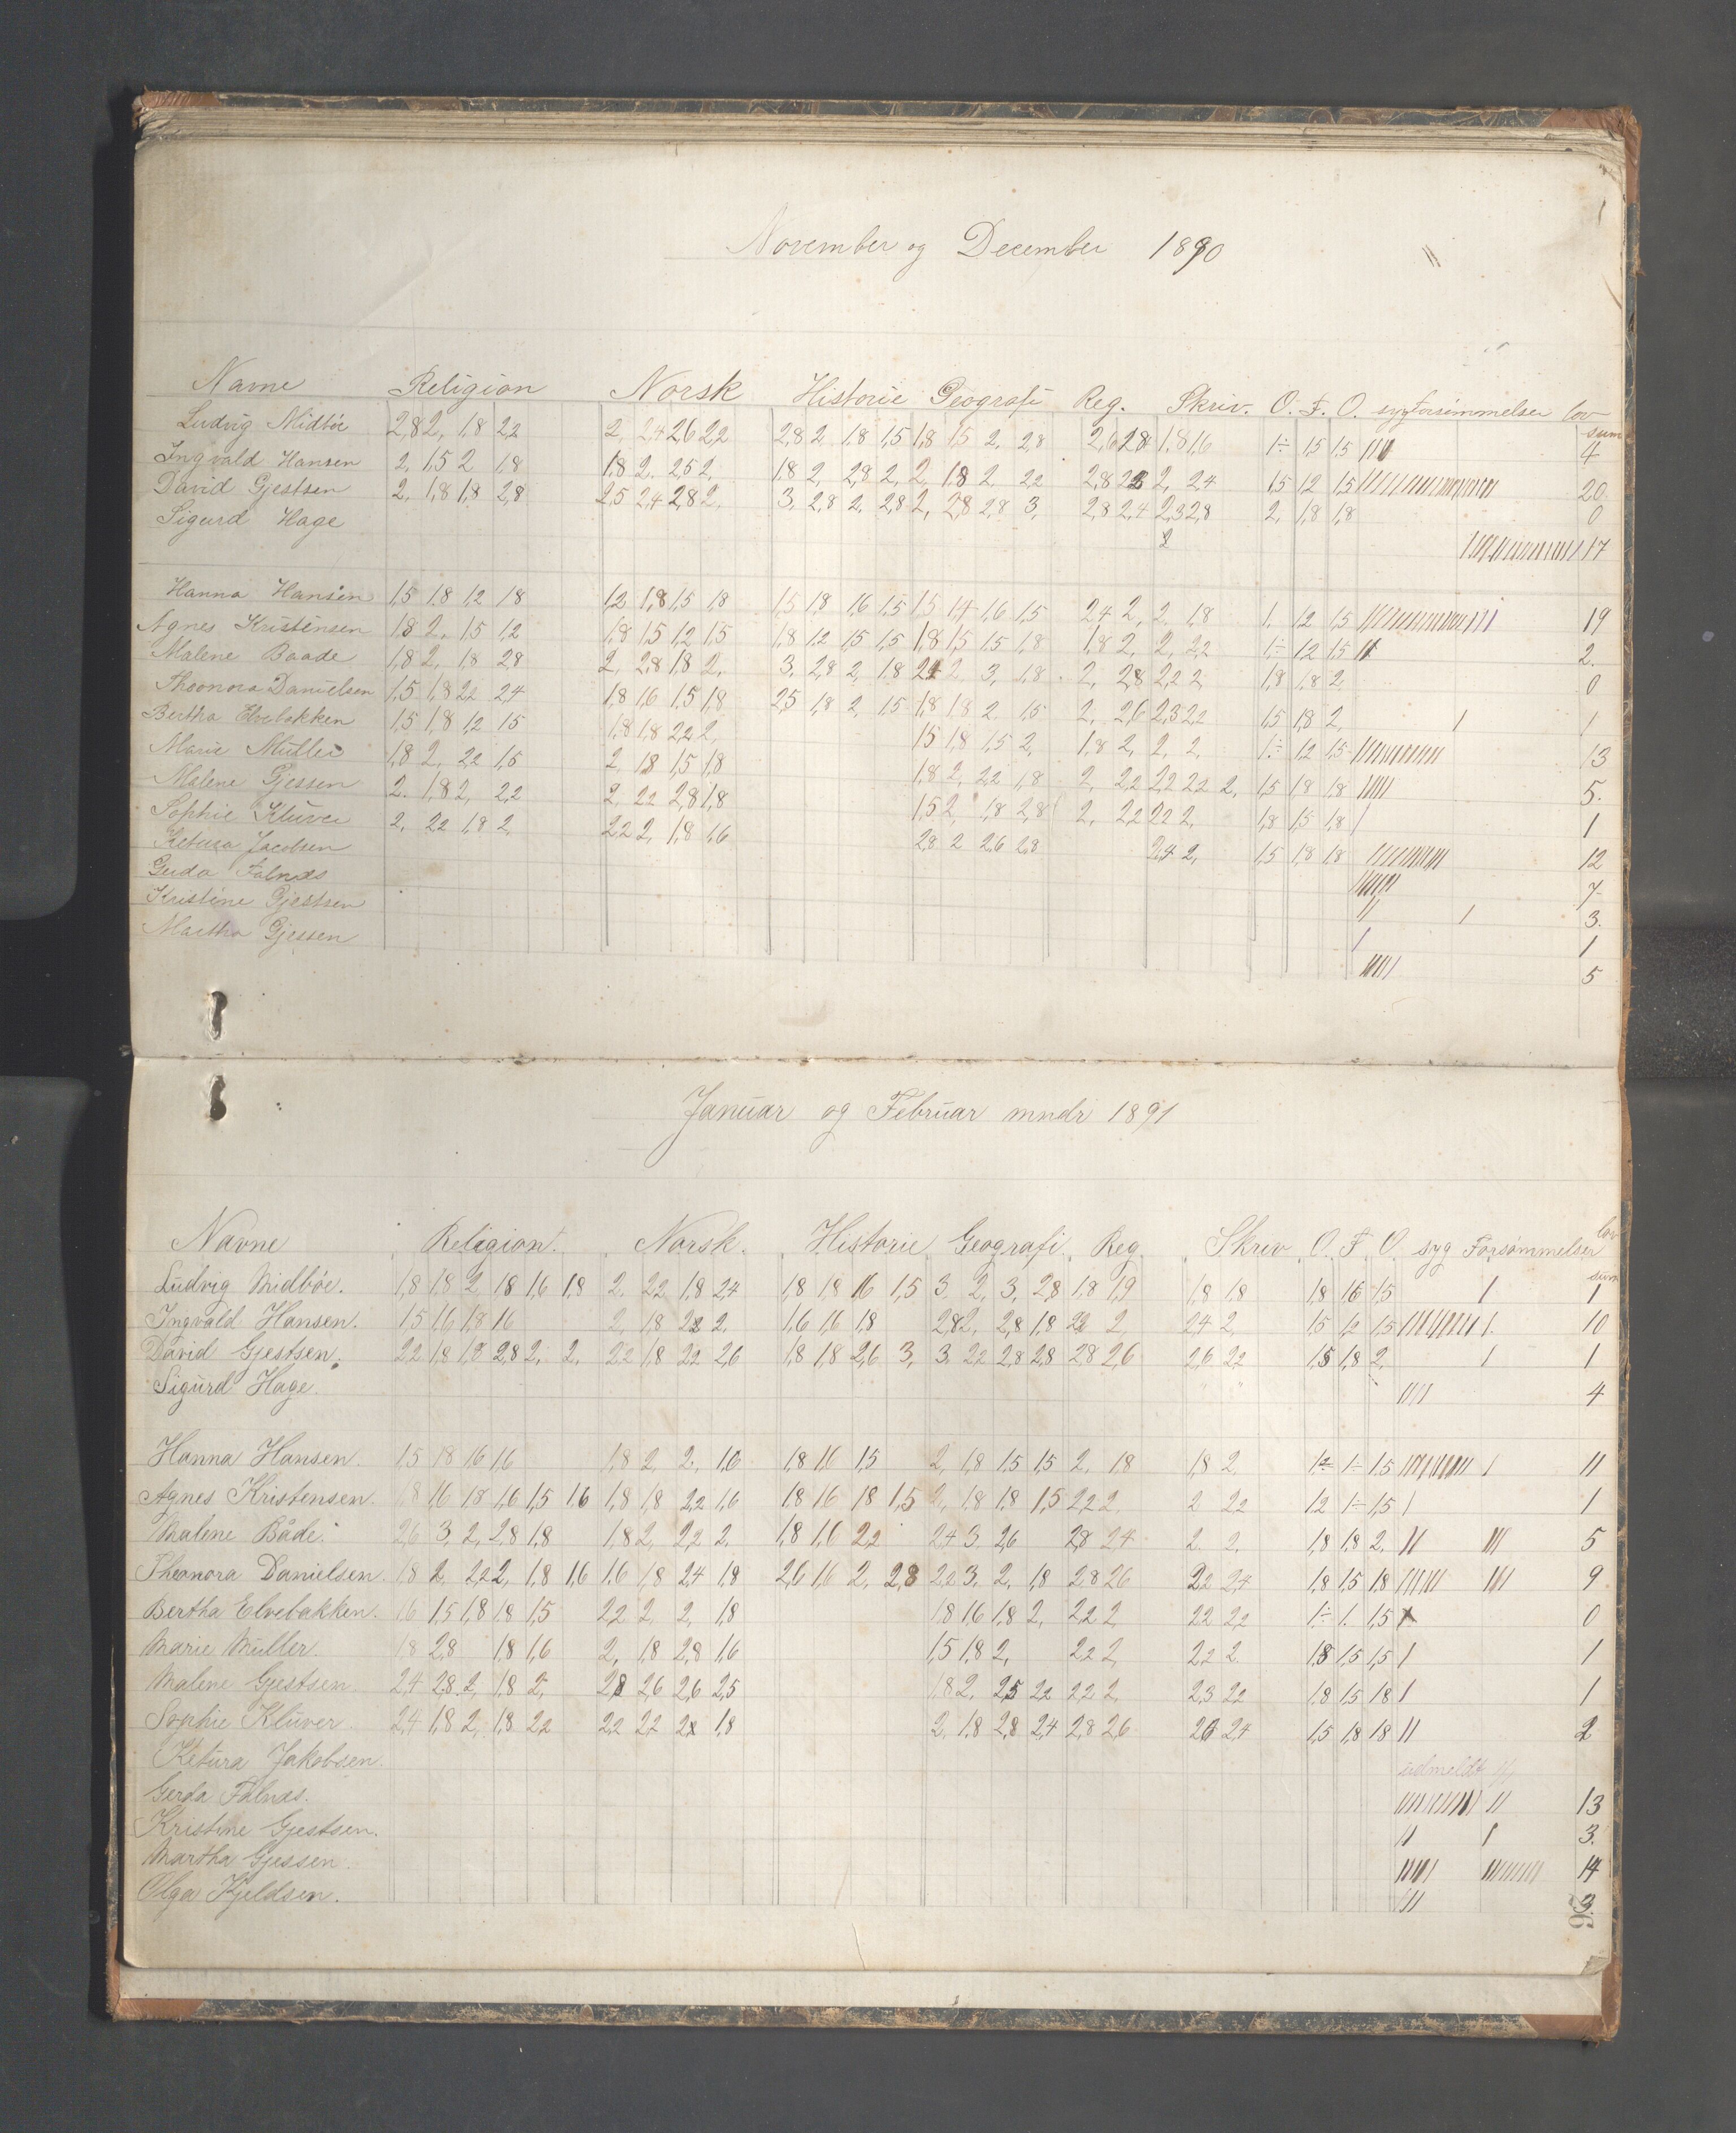 November og December 1890
Navne Religion Norsk Historie Geografi Reg. Skriv. O. F. O. syg Forsømmelser lov
sum
Ludvig Midbøe 2,8 2, 1,8 2,2 2, 2,4 2,6 2,2 2,8 2 1,8 1,5 1,8 1,5 2, 2,8 2,6 2,8 1,8 1,6 1÷ 1,5 1,5 4
Ingvald Hansen 2, 1,5 2 1,8 1,8 2. 2,5 2, 1,8 2, 2,8 2, 2, 1,8 2, 2,2 2,8 2, 2,4 1,5 1,2 1,5 20
David Gjestsen 2, 1,8 1,8 2,8 2,5 2,4 2,8 2, 3, 2,8 2, 2,8 2, 2,8 2,8 3, 2,8 2,4 2,3 2,8 2, 1,8 1,8 0
Sigurd Hage 2 17
Hanna Hansen 1,5 1,8 1,2 1,8 1,2 1,8 1,5 1,8 1,5 1,8 1,6 1,5 1,5 1,4 1,6 1,5 2,4 2, 2, 1,8 1. 1,2 1,5 19
Agnes Kristensen 1,8 2, 1,5 1,2 1,8 1,5 1,2 1,5 1,8 1,2 1,5 1,5 1,8 1,5 1,5 1,8 1,8 2, 2, 2,2 1÷ 1,2 1,5 2.
Malene Baade 1,8 2, 1,8 2,8 2, 2,8 1,8 2, 3, 2,8 2, 1,8 2,4 2, 3, 1,8 2, 2,8 2,2 2 1,8 1,8 2, 0
Theonora Danielsen 1,5 1,8 2,2 2,4 1,8 1,6 1,5 1,8 2,5 1,8 2, 1,5 1,8 1,8 2, 1,5 2, 2,6 2,3 2,2 1,5 1,8 2, 1
Bertha Elvebakken 1,5 1,8 1,2 1,5 1,8 1,8 2,2 2, 1,5 1,8 1,5 2, 1,8 2, 2, 2, 1÷ 1,2 1,5 13
Marie Müller 1,8 2, 2,2 1,5 2, 1,8 1,5 1,8 1,8 2, 2,2 1,8 2, 2,2 2,2 2,2 2, 1,5 1,8 1,8 5.
Malene Gjessen 2. 1,8 2, 2,2 2, 2,2 2,8 1,8 1,5 2, 1,8 2,8 2, 2,2 2,2 2, 1,8 1,5 1,8 1
Sophie Klüver 2, 2,2 1,8 2, 2,2 2, 1,8 1,6 2,8 2 2,6 2,8 2,4 2, 1,5 1,8 1,8 12
Ketura Jacobsen 7
Gerda Falnæs 3.
Kristine Gjestsen 1
Martha Gjessen 5
Januar og Februar mndr 1891
Navne Religion. Norsk. Historie Geografi Reg. Skriv O. F. O. syg Forsømmelser lov
sum
Ludvig Midbøe. 1,8 1,8 2, 1,8 1,6 1,8 2, 2,2 1,8 2,4 1,8 1,8 1,6 1,5 3. 2, 3, 2,8 1,8 1,9 1,8 1,8 1,8 1,6 1,5 1
Ingvald Hansen. 1,5 1,6 1,8 1,6 2, 1,8 2,2 2. 1,6 1,6 1,8 2,8 2, 2,8 1,8 2,2 2, 2,4 2, 1,5 1,2 1,5 10
David Gjestsen. 2,2 1,8 1,8 2,8 2, 2, 2,2 1,8 2,2 2,6 1,8 1,8 2,6 3, 3. 2,2 2,8 2,8 2,8 2,6 2,6 2,2 1,5 1,8 2, 1
Sigurd Hage. 4
Hanna Hansen. 1,5 1,8 1,6 1,6 1,8 2, 2, 1,6 1,8 1,6 1,5 2, 1,8 1,5 1,5 2, 1,8 1,8 2, 1,2 1÷ 1,5 11
Agnes Kristensen. 1,8 1,6 1,8 1,6 1,5 1,6 1,8 1,8 2,2 1,6 1,8 1,6 1,8 1,5 2, 1,8 1,8 1,5 2,2 2, 2 2,2 1,2 1÷ 1,5 1
Malene Både. 2,6 3, 2, 2,8 1,8 1,8 2, 2,2 2, 1,8 1,6 2,2 2,4 3. 2,6 2,8 2,4 2. 2. 1,8 1,8 2. 5
Theonora Danielsen. 1,8 2, 2,2 2, 1,8 1,6 1,6 1,8 2,4 1,8 2,6 1,6 2, 2,8 2,2 3. 2, 1,8 2,8 2,6 2,2 2,4 1,8 1,5 1,8 9
Bertha Elvebakken. 1,6 1,5 1,8 1,8 1,5 2,2 2, 2, 1,8 1,8 1,6 1,8 2, 2,2 2, 2,2 2,2 1÷ 1. 1,5 0
Marie Müller. 1,8 2,8 1,8 1,6 2, 1,8 2,8 1,6 1,5 1,8 2, 2,2 2, 2,2 2. 1,8 1,5 1,5 1
Malene Gjestsen 2,4 2,8 2, 1,8 2, 2,8 2,6 2,6 2,5 1,8 2, 2,5 2,2 2,2 2, 2,3 2,2 1,8 1,5 1,8 1
Sophie Klüver. 2,4 1,8 2, 1,8 2,2 2,2 2,2 2,2 1,8 2, 1,8 2,8 2,4 2,8 2,6 2,6 2,4 1,5 1,8 1,8 2
Ketura Jakobsen. udmeldt
Gerda Falnæs. 13
Kristine Gjestsen. 3.
Martha Gjessen. 14
Olga Kjeldsen. 3.
26